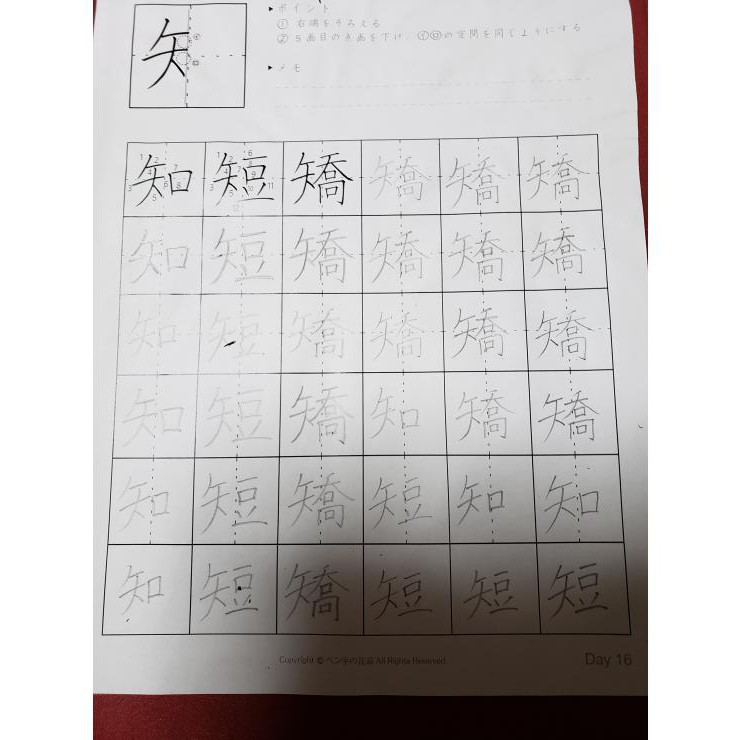 矢
▶ポイント
① 右端をそろえる
② 5画目の点画を下げ、㋑㋺の空間を同じようにする
▶メモ
知 短 矯 矯 矯 矯
知 短 矯 矯 矯 矯
知 短 矯 矯 矯 矯
知 短 矯 知 矯 矯
知 短 矯 短 知 知
知 短 矯 短 短 短
Copyright © ペン字の花壇 All Rights Reserved.
Day 16